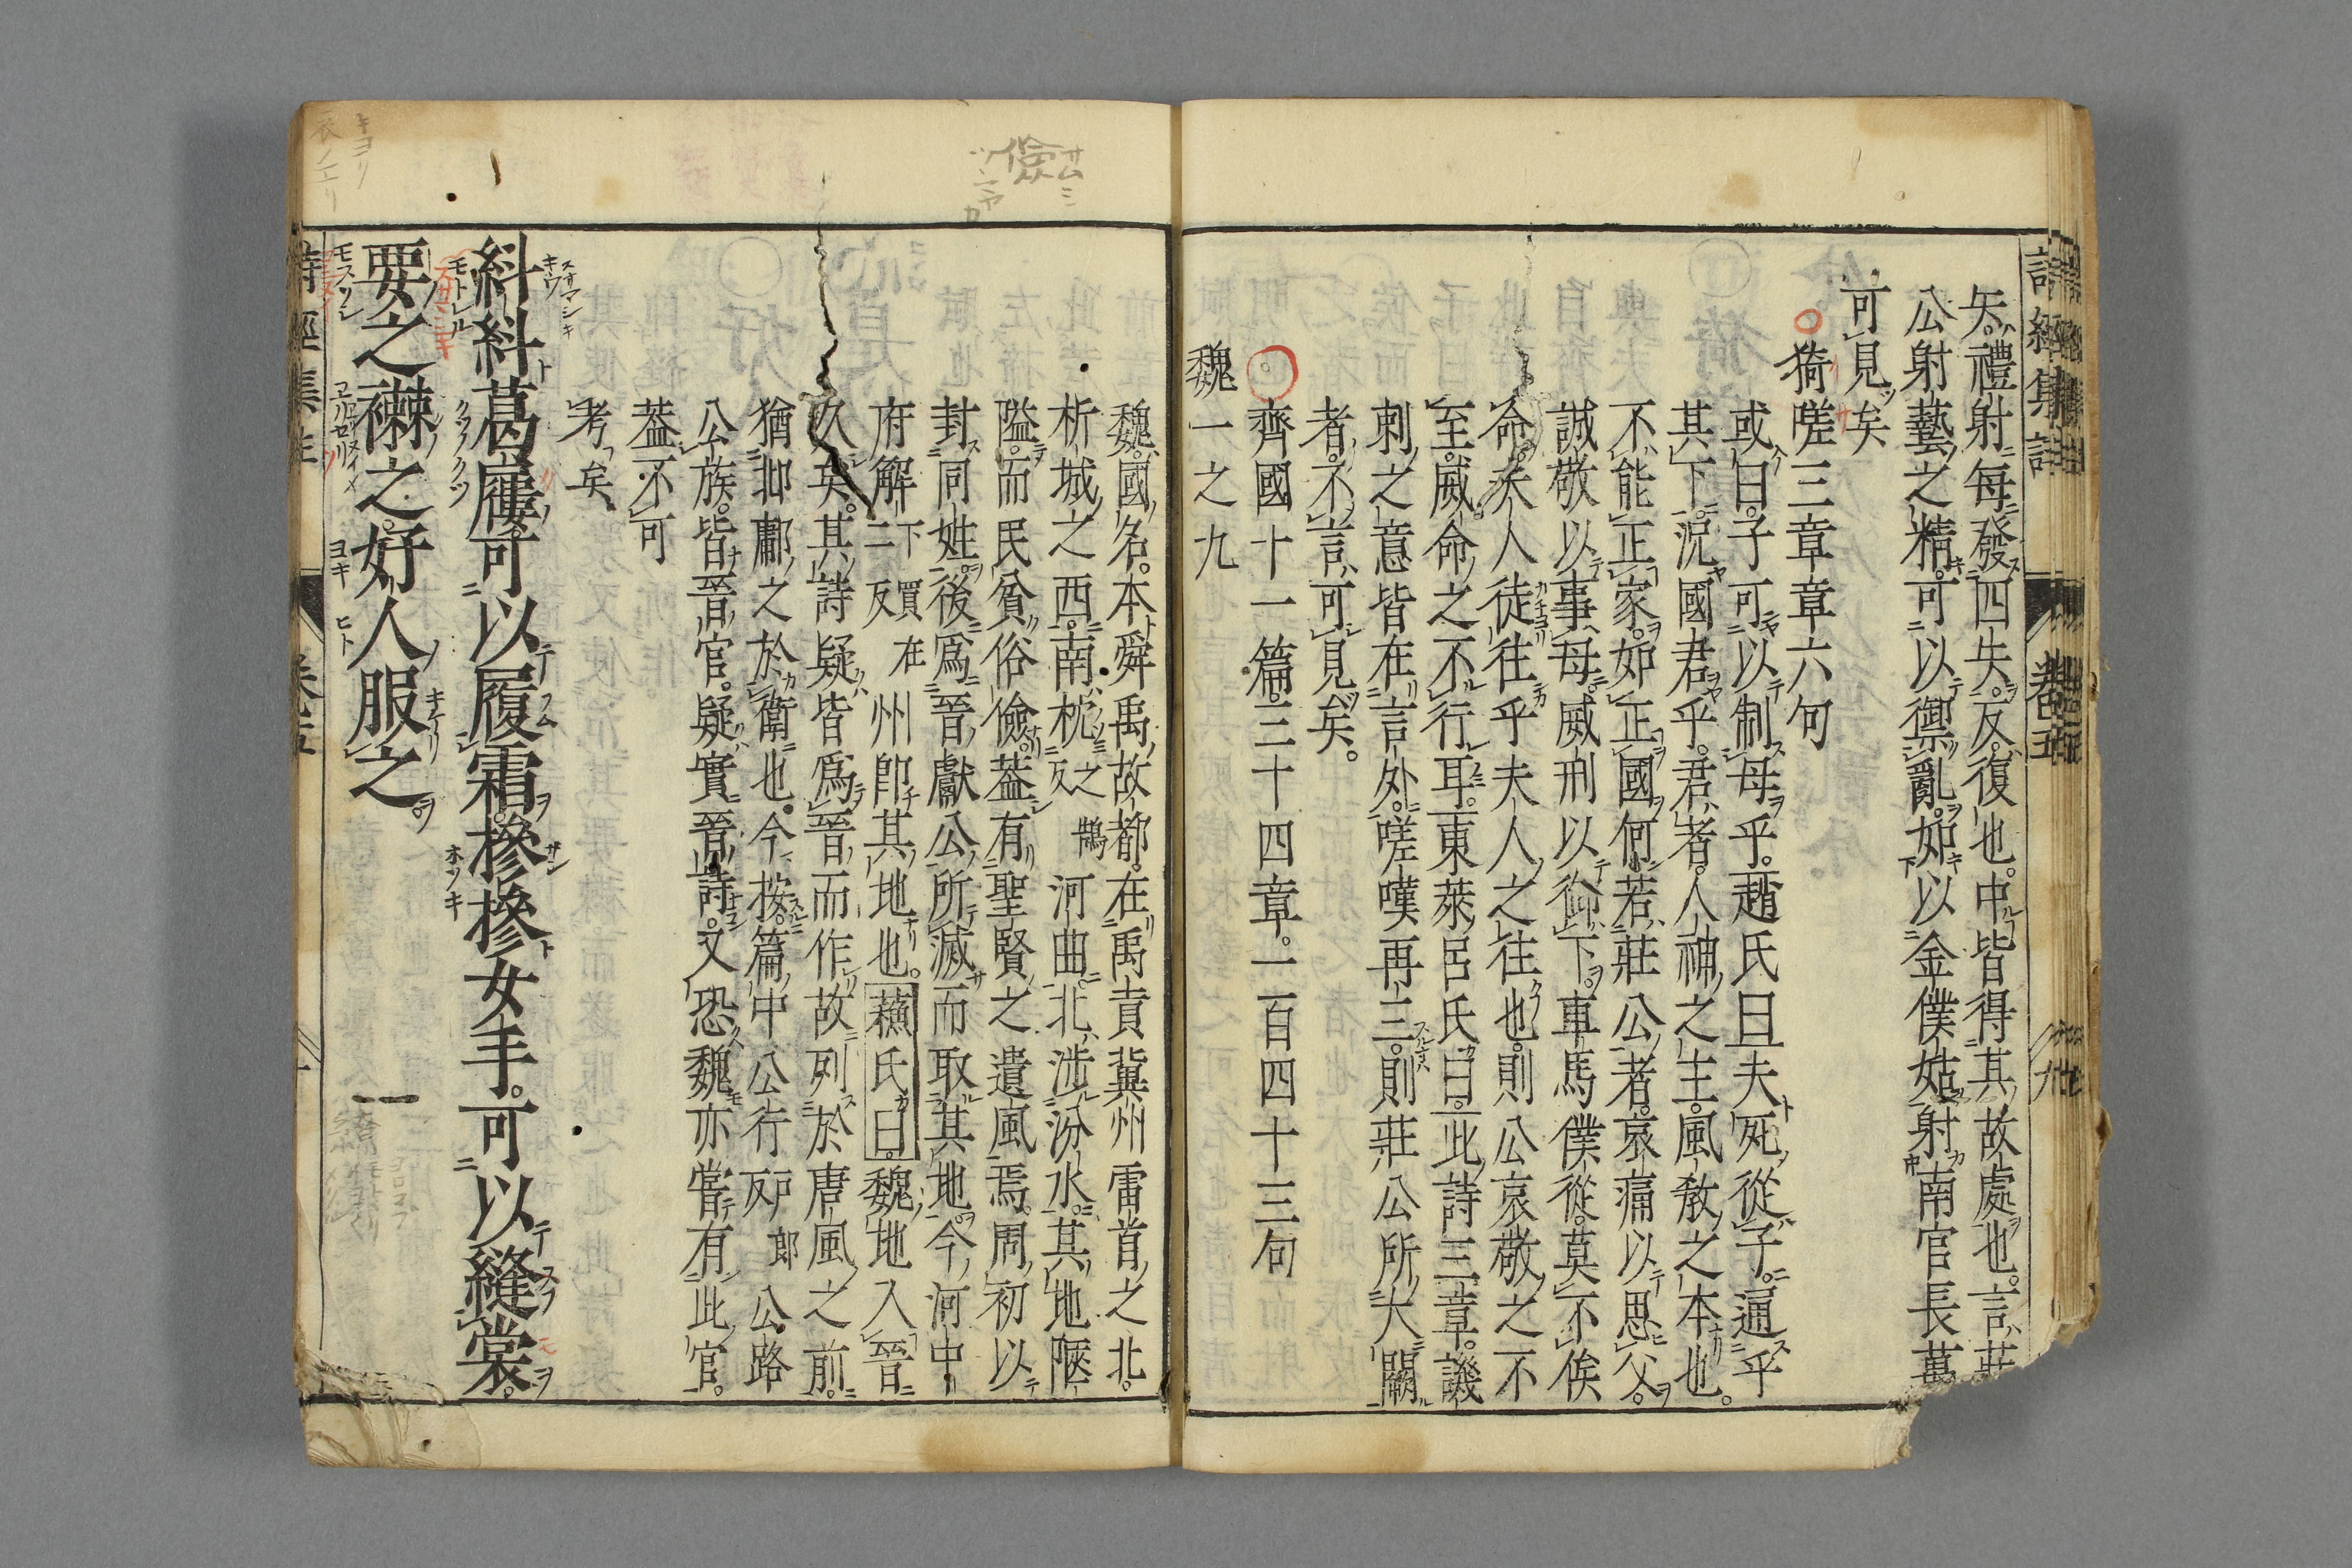 詩經集註 卷五 九
矢。禮射每發四矢。反。復也。中皆得其故處也。言莊
公射藝之精。可以禦亂。如以金僕姑射南宮長萬
可見矣
猗嗟三章章六句
或曰。子可以制母乎。趙氏曰夫死從子。通乎
其下。況國君乎。君者。人神之主。風敎之本也。
不能正家。如正國何。若莊公者。哀痛以思父。
誠敬以事母。威刑以御下。車馬僕從。莫不俟
命。夫人徒往乎夫人之往也。則公哀敬之不
至。威命之不行耳。東萊呂氏曰。此詩三章。譏
刺之意皆在言外。嗟嘆再三。則莊公所大闕
者。不言可見矣。
齊國十一篇。三十四章。一百四十三句
魏一之九
魏。國名。本舜禹故都。在禹貢冀州雷首之北。
析城之西。南枕之鴆反河曲。北涉汾水。其地陿
隘。而民貧俗儉。葢有聖賢之遺風焉。周初以
封同姓。後爲晉獻公所滅而取其地。今河中
府解下買反在二州卽其地也。蘓氏曰。魏地入晉
久矣。其詩疑皆爲晉而作。故列於唐風之前。
猶邶鄘之於衛也。今按。篇中公行戶郎反公路
公族。皆晉官。疑實晉詩。又恐魏亦嘗有此官。
葢不可
考矣
糾糾葛屨。可以履霜。摻摻女手。可以縫裳。
要之襋之。好人服之。
儉
サムシ
ツ